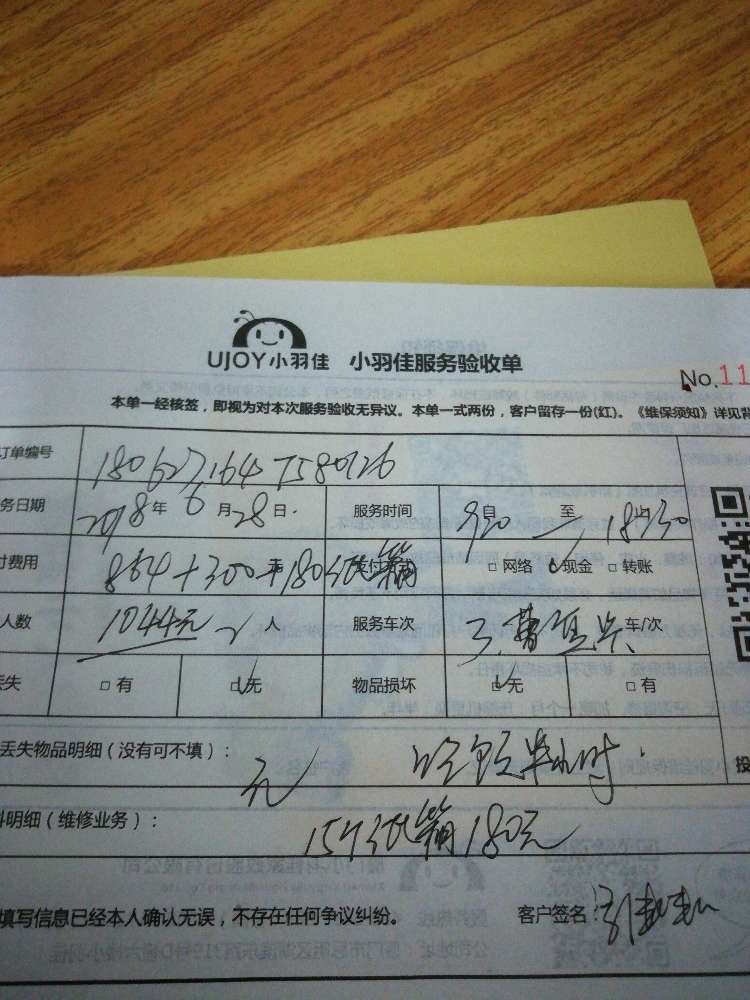 UJOY小羽佳 小羽佳服务验收单
No.11
本单一经核签，即视为对本次服务验收无异议。本单一式两份，客户留存一份(红)。《维保须知》详见背
订单编号 180627164
务日期 2018年6月28日. 服务时间 920自 至 18时30
付费用 864+300+180纸箱 支付 □网络 ☑现金 □转账
人数 1044元 人 服务车次 车/次
丢失 □有 ☑无 物品损坏 ☑无 □有
丢失物品明细（没有可不填）： 无 半小时.
料明细（维修业务）： 15个纸箱180元
填写信息已经本人确认无误，不存在任何争议纠纷。 客户签名：